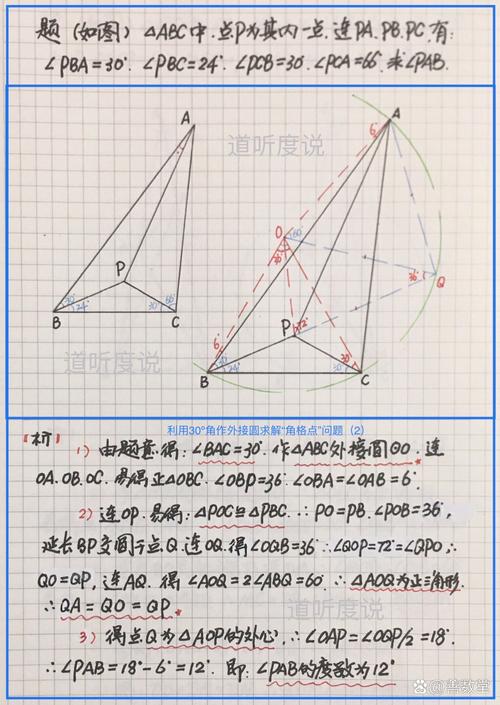 题(如图) △ABC中.点P为其内一点.连PA.PB.PC.有:
∠PBA=30°.∠PBC=24°.∠PCB=30°.∠PCA=66°.求∠PAB.
道听度说
A
P
B
C
30°
24°
30°
66°
A
6°
O
60°
36°
36°
Q
P
72°
6°
B
30°
24°
30°
30°
C
道听度说
利用30°角作外接圆求解“角格点”问题（2）
【析】 1) 由题意得:∠BAC=30°.作△ABC外接圆⊙O.连
OA.OB.OC.易得正△OBC.∠OBP=36°.∠OBA=∠OAB=6°.
2) 连OP.易得:△POC≌△PBC.∴PO=PB.∠POB=36°,
延长BP交圆于点Q.连OQ.得∠OQB=36°∴∠QOP=72°=∠QPO,∴
QO=QP,连AQ.得∠AOQ=2∠ABQ=60°.∴△AOQ为正三角形.
∴QA=QO=QP.
道听度说
3) 得点Q为△AOP的外心,∴∠OAP=∠OQP/2=18°.
∴∠PAB=18°-6°=12°.即:∠PAB的度数为12°
@善教堂